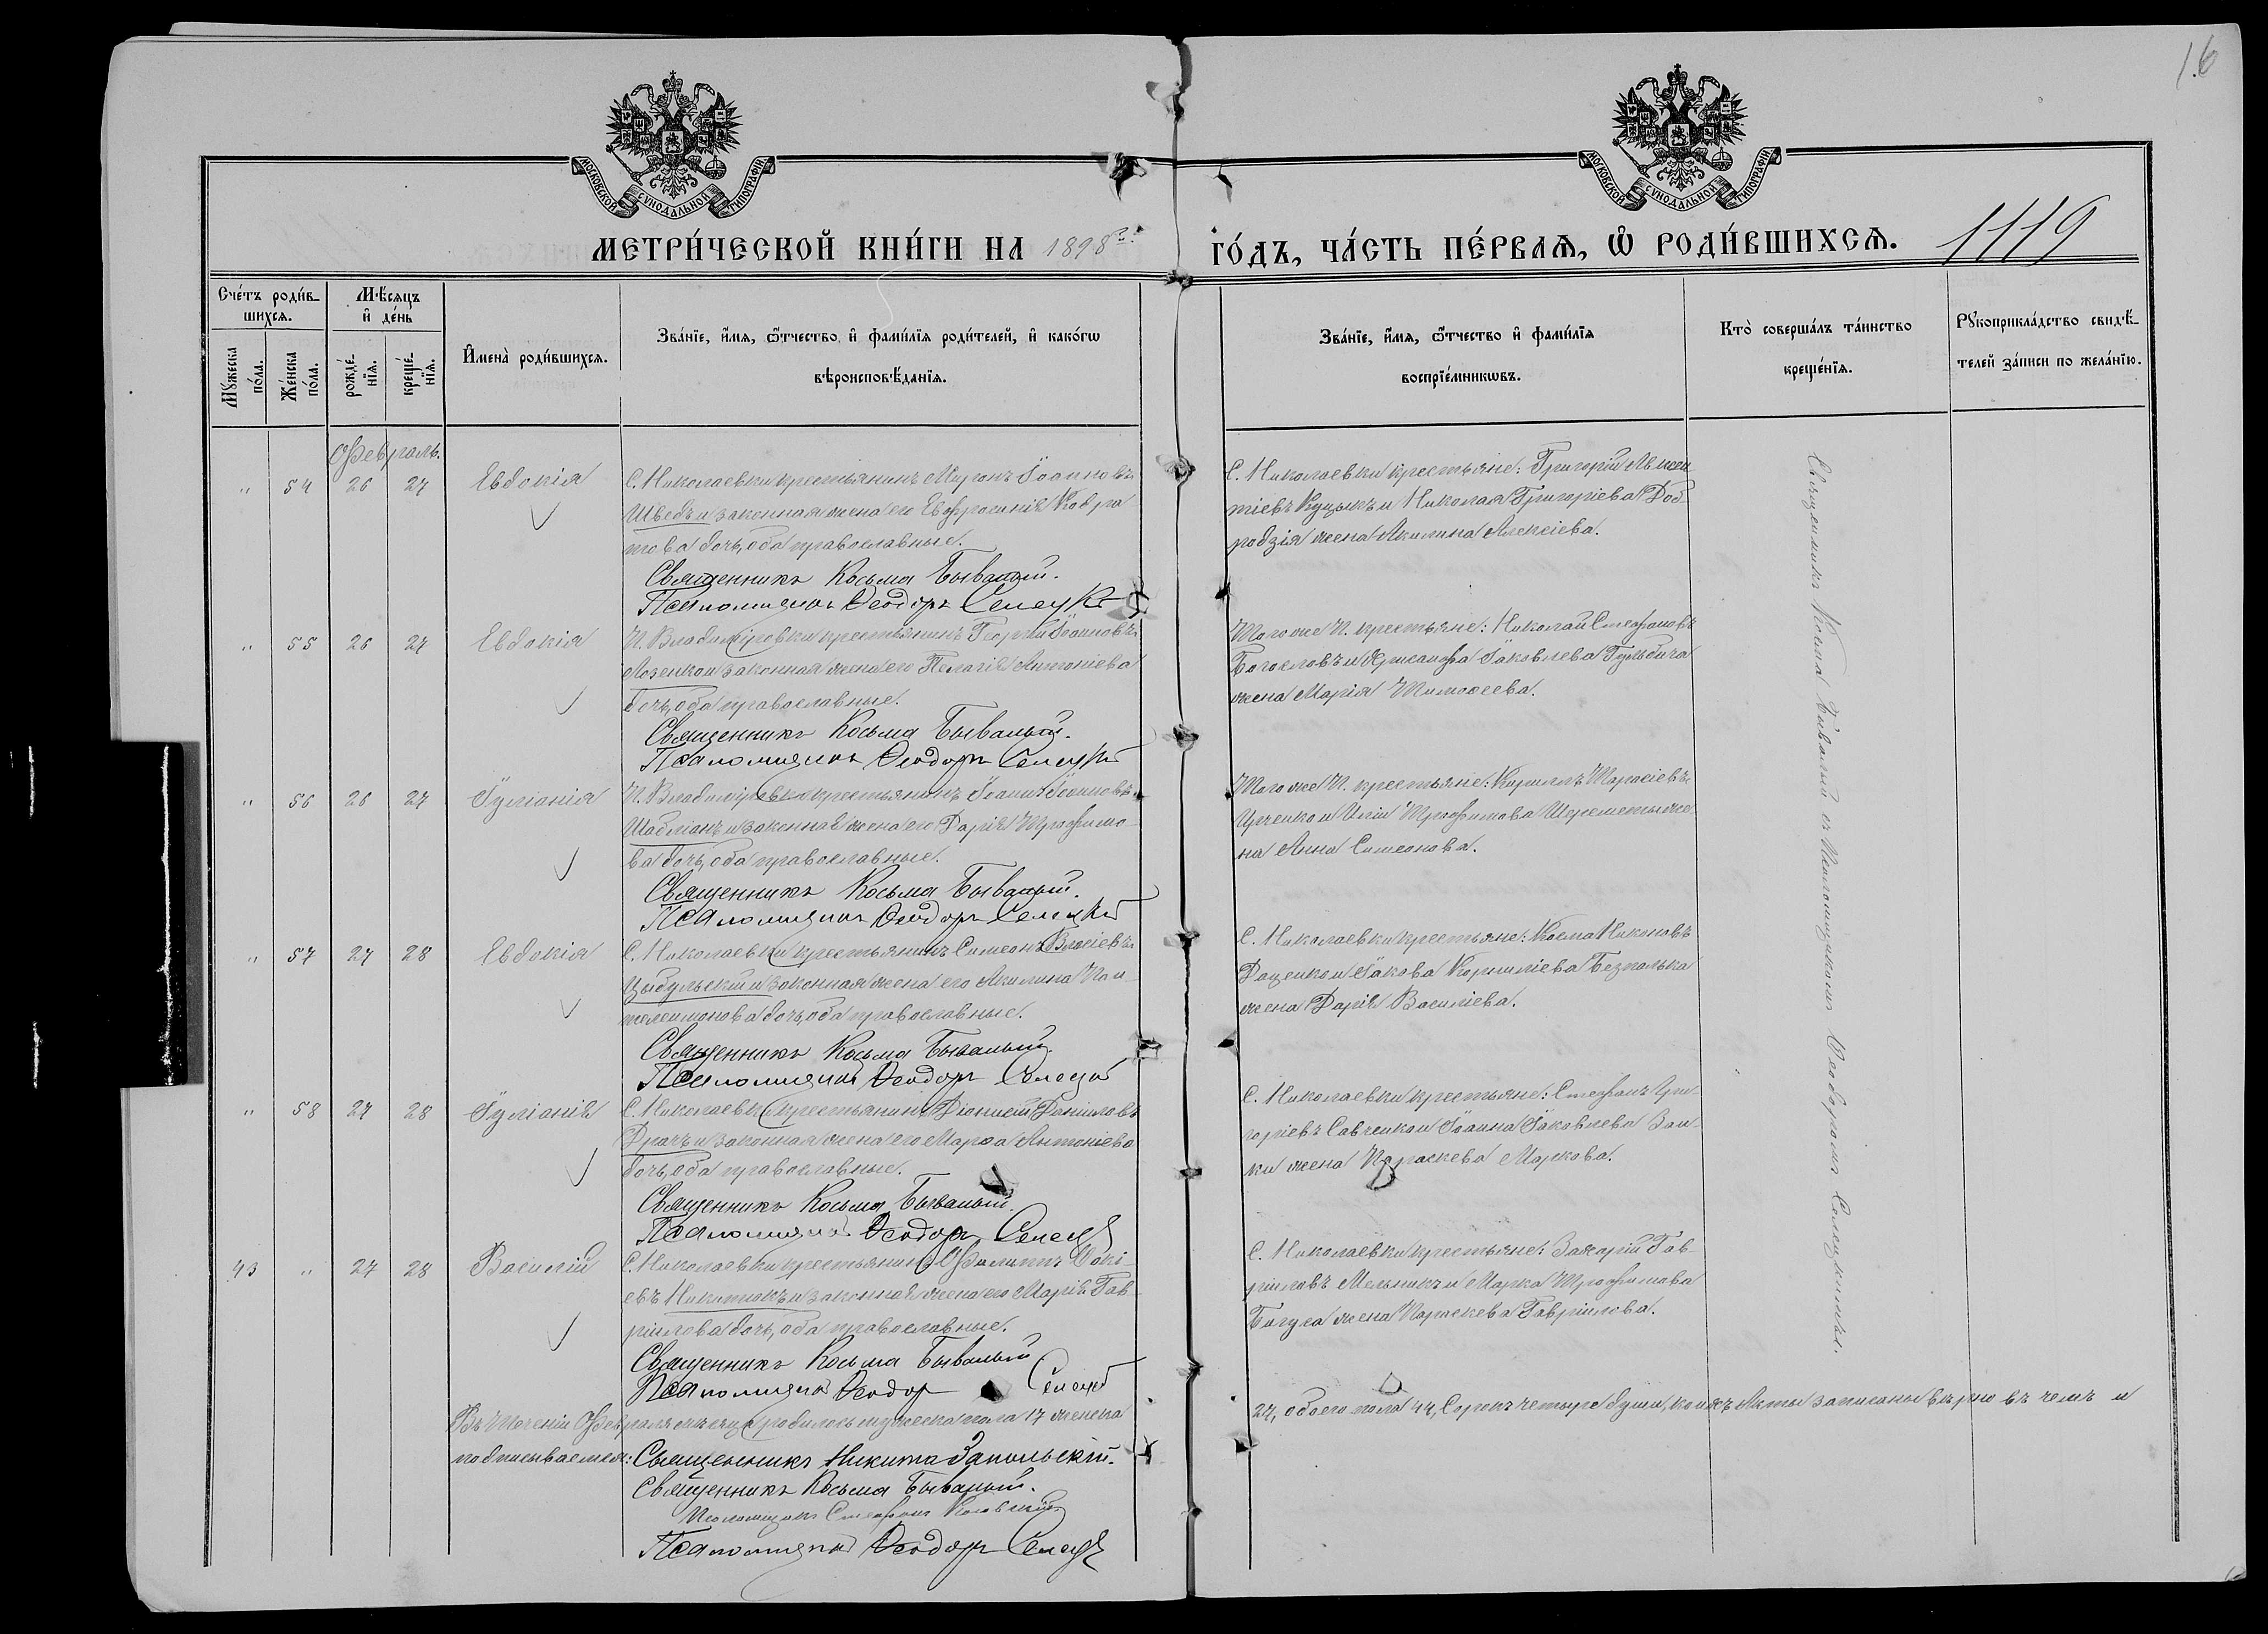 16
МОСКОВСКОЙ СѴНОДАЛЬНОЙ ТИПОГРАФІИ
МОСКОВСКОЙ СѴНОДАЛЬНОЙ ТИПОГРАФІИ
МЕТРИ́ЧЕСКОЙ КНИ́ГИ НА 1898 й
ГО́ДЪ, ЧА́СТЬ ПЕ́РВАѦ, Ѡ҆ РОДИ́ВШИХСѦ. 1119
Сче́тъ роди́в-
шихсѧ.
Мѣ́сѧцъ
и҆ де́нь
Мꙋ́жеска по́ла.
Же́нска по́ла.
рожде́нїѧ.
креще́нїѧ.
И҆мена̀ роди́вшихсѧ.
Зва́нїе, и҆́мѧ, ѻ҆́тчество, и҆ фами́лїѧ роди́телей, и҆ како́гѡ
вѣроисповѣ́данїѧ.
Зва́нїе, и҆́мѧ, ѻ҆́тчество и҆ фами́лїѧ
воспрїе́мникѡвъ.
Кто̀ соверша́лъ та́инство
креще́нїѧ.
Рꙋкоприкла́дство свидѣ́-
телей за́писи по жела́нїю.
Февраль.
" 54 26 27 Евдокія
С. Николаевки крестьянинъ Миронъ Іоанновъ
Шведъ и законная жена его Евфросинія Кодра-
това дочь, оба православные.
Священникъ Косьма Бывалый.
Псаломщикъ Ѳеодоръ Селецкій
С. Николаевки крестьяне: Григорій
тіевъ Куцыкъ и Николая Григоріева Доб-
родзія жена Акилина Алексіева.
" 55 26 27 Евдокія
П. Владиміровки крестьянинъ Георгій Іоанновъ
Лозенко и законная жена его Пелагія Антоніева
дочь, оба православные.
Священникъ Косьма Бывалый.
Псаломщикъ Ѳеодоръ Селецкій
Того же П. крестьяне: Николай Стефановъ
Богословъ и Хрисанфа Іаковлева Гульбича
жена Марія Тимоѳеева.
" 56 26 27 Іуліанія
П. Владиміровки крестьянинъ Іоаннъ Іоанновъ
Шабліанъ и законная жена его Дарія Трофимо-
ва дочь, оба православные.
Священникъ Косьма Бывалый.
Псаломщикъ Ѳеодоръ Селецкій
Того же П. крестьяне: Кириллъ Тарасіевъ
Урченко и Иліи Трофимова Шереметы же-
на Анна Симеонова.
" 57 27 28 Евдокія
С. Николаевки крестьянинъ Симеонъ Власіевъ
Цыбульскій и законная жена его Акилина Пан-
телеимонова дочь, оба православные.
Священникъ Косьма Бывалый.
Псаломщикъ Ѳеодоръ Селецкій
С. Николаевки крестьяне: Косма Никоновъ
Даценко и Іакова Корниліева Безпалька
жена Дарія Василіева.
" 58 27 28 Іуліанія
С. Николаевки крестьянинъ Діонисій Даніиловъ
Драчъ и законная жена его Марѳа Антоніева
дочь, оба православные.
Священникъ Косьма Бывалый.
Псаломщикъ Ѳеодоръ Селецкій
С. Николаевки крестьяне: Стефанъ Гри-
горіевъ Савченко и Іоанна Іаковлева Заи-
ки жена Параскева Маркова.
43 " 27 28 Василій
С. Николаевки крестьянинъ Филиппъ Фокі-
евъ Никитюкъ и законная жена его Марія Гав-
ріилова дочь, оба православные.
Священникъ Косьма Бывалый
Псаломщикъ Ѳеодор Селецкій
С. Николаевки крестьяне: Захарій Гав-
ріиловъ Мельникъ и Марка Трофимова
Багула жена Параскева Гавріилова.
Священникъ Косьма Бывалый съ Псаломщикомъ Ѳеодоромъ Селецкимъ.
Въ теченіи Февраля мѣсяца родилось мужеска пола 17 женска
27, обоего пола 44, Сорокъ четыре души, коихъ Акты записаны вѣрно въ чемъ и
подписываемся: Священникъ Никита Запольскій.
Священникъ Косьма Бывалый.
Псаломщикъ Стефанъ
Псаломщикъ Ѳеодоръ Селецкій